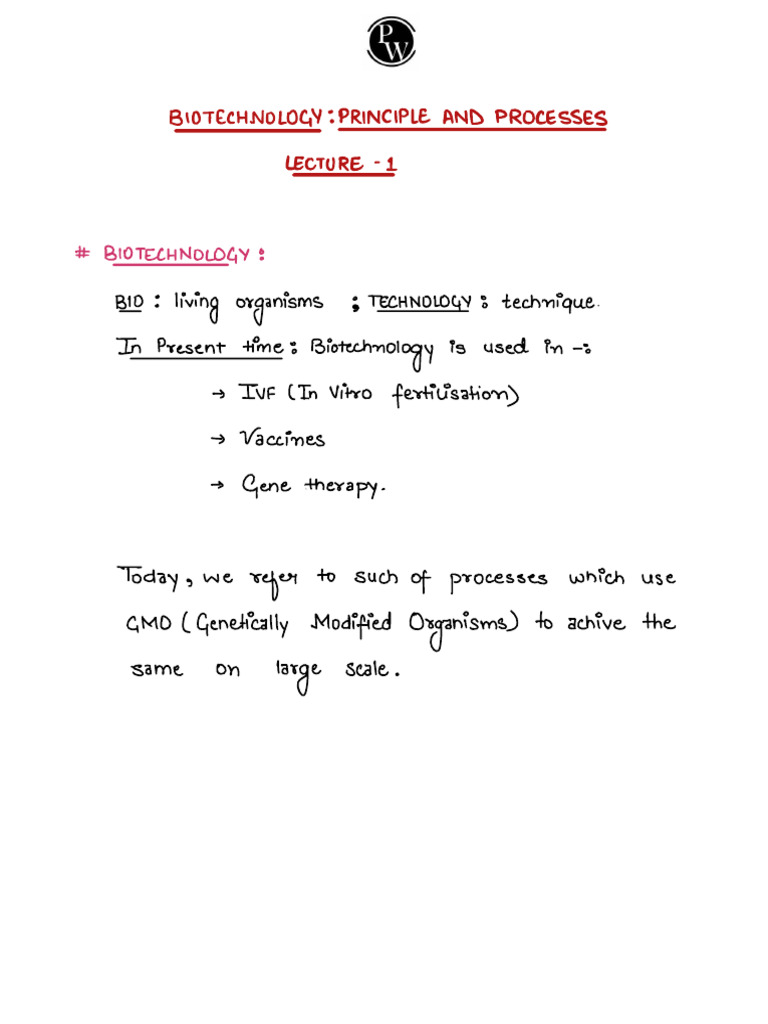 PW
BIOTECHNOLOGY : PRINCIPLE AND PROCESSES
LECTURE - 1
# BIOTECHNOLOGY :
BIO : living organisms ; TECHNOLOGY : technique.
In Present time : Biotechnology is used in -:
→ IVF (In Vitro fertilisation)
→ Vaccines
→ Gene therapy.
Today, we refer to such of processes which use
GMO (Genetically Modified Organisms) to achive the
same on large scale.